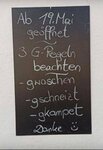 Ab 19. Mai
geöffnet
3 G-Regeln
beachten
- gwoschen
- gschneizt
- gkampet
Danke ☺